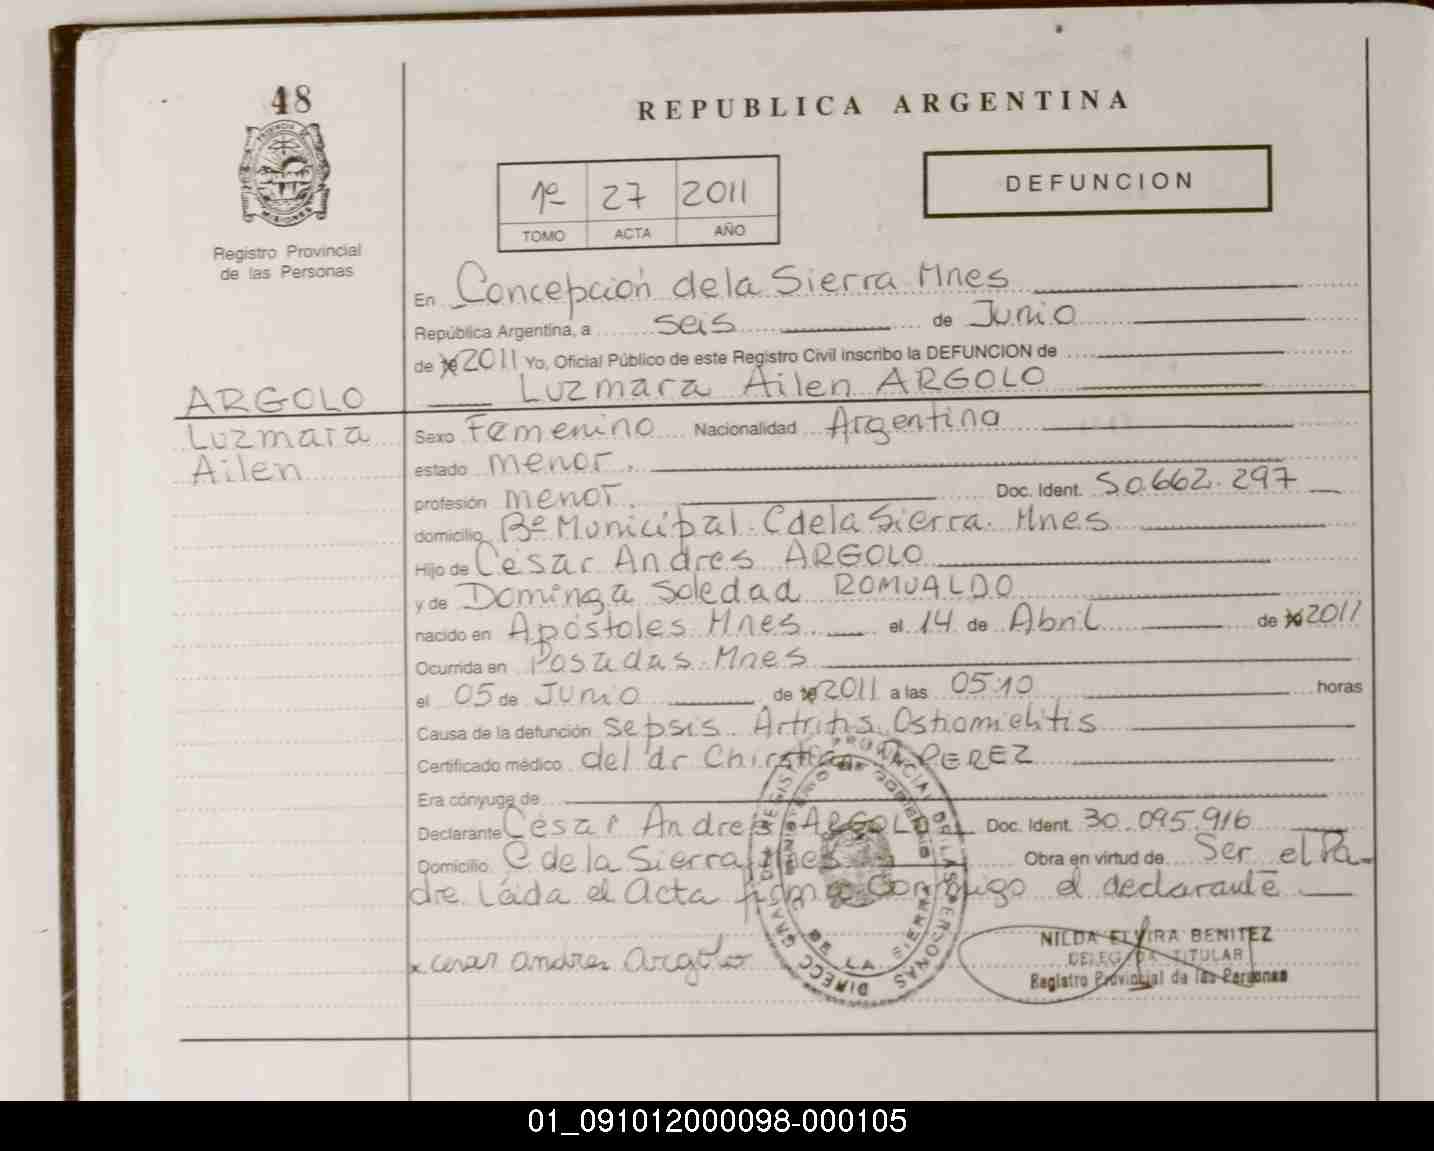 48
REPUBLICA ARGENTINA
PROVINCIA DE
MISIONES
Registro Provincial
de las Personas
1º 27 2011
TOMO ACTA AÑO
DEFUNCION
En Concepción de la Sierra Mnes
República Argentina, a seis de Junio
de 2011 Yo, Oficial Público de este Registro Civil inscribo la DEFUNCION de
Luzmara Ailen ARGOLO
ARGOLO
Luzmara
Ailen
Sexo Femenino Nacionalidad Argentina
estado menor.
profesión menor. Doc. Ident. 50.662.297
domicilio Bº Municipal. C de la Sierra. Mnes
Hijo de César Andres ARGOLO
y de Dominga Soledad ROMUALDO
nacido en Apóstoles Mnes el 14 de Abril de 2011
Ocurrida en Posadas. Mnes
el 05 de Junio de 2011 a las 05:10 horas
Causa de la defunción Sepsis. Artritis. Ostiomielitis
Certificado médico del dr Chirstian PEREZ
Era cónyuge de
Declarante César Andres ARGOLO Doc. Ident. 30.095.916
Domicilio C de la Sierra Mnes Obra en virtud de Ser el Pa-
dre Láda el Acta firma conmigo el declarante
x cesar andres Argolo
DIRECC. GRAL. DE REGIST. PROVINCIAL DE LAS PERSONAS
DE LA SIERRA
NILDA ELVIRA BENITEZ
DELEGADA TITULAR
Registro Provincial de las Personas
01_091012000098-000105